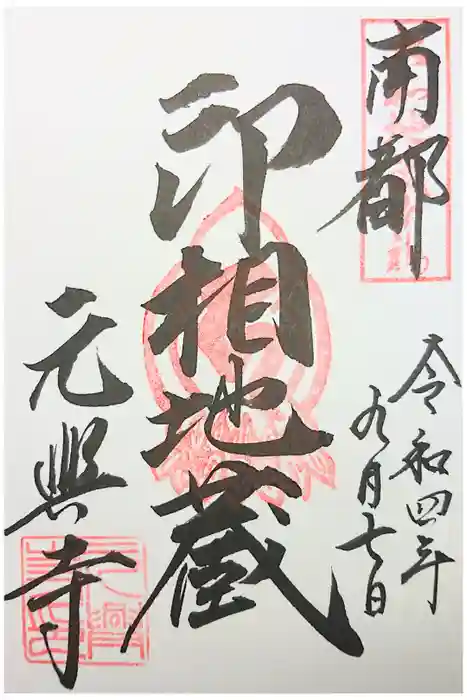 南都
令和四年
九月七日
印相地蔵
元興寺